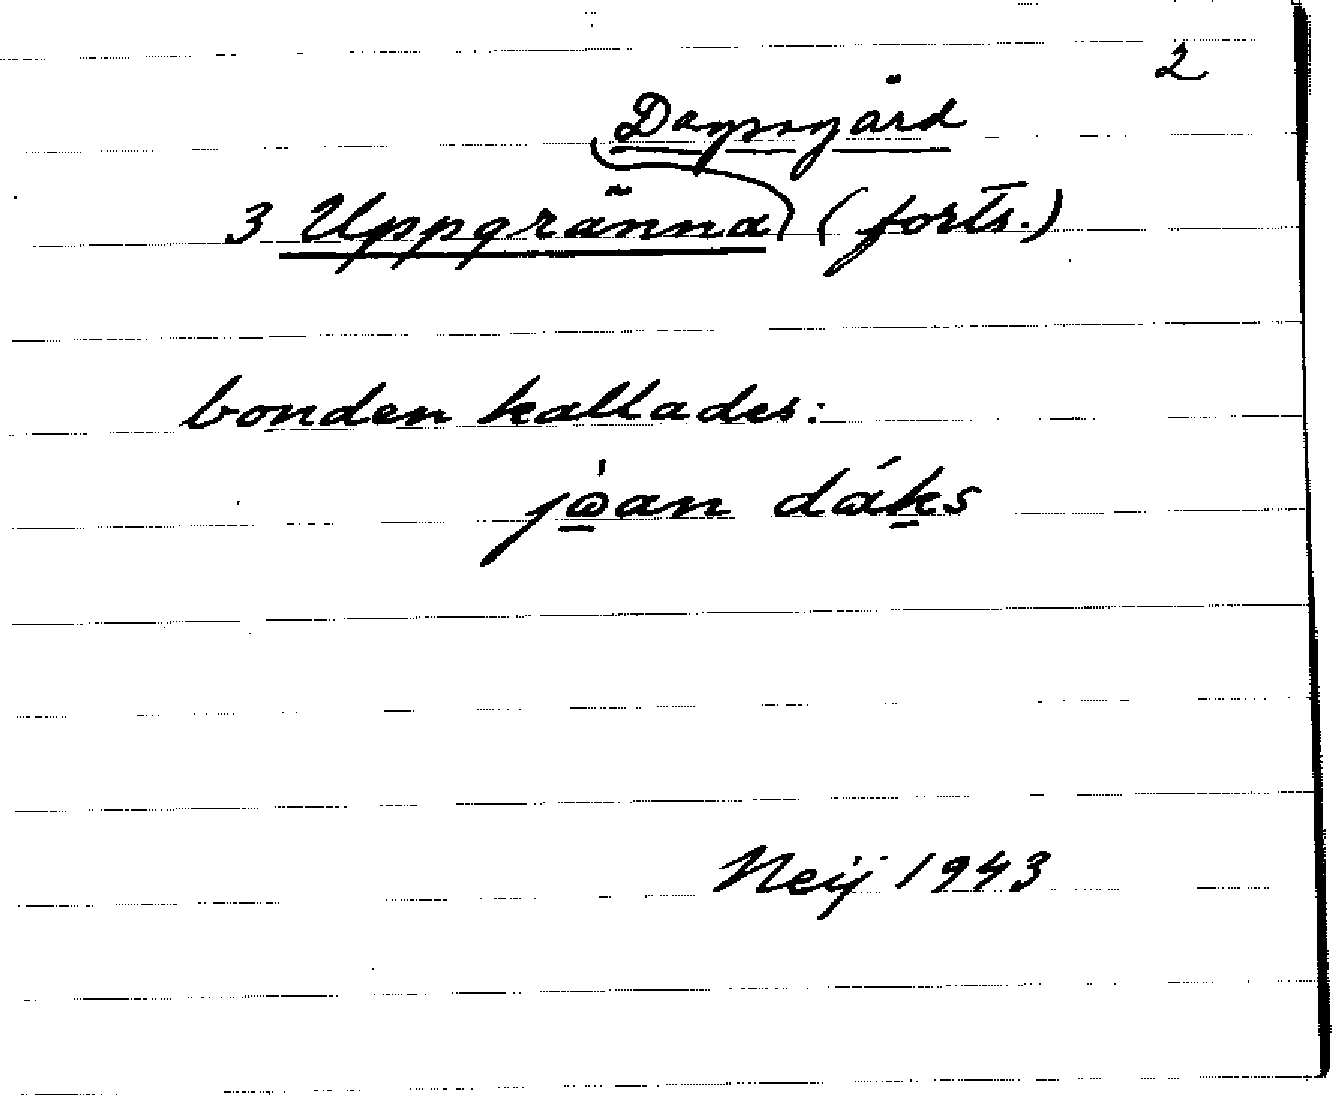 2
Dagsgård
3 Uppgränna (forts.)
bonden kallades:
jo̲̍an dák̲s
Neij 1943